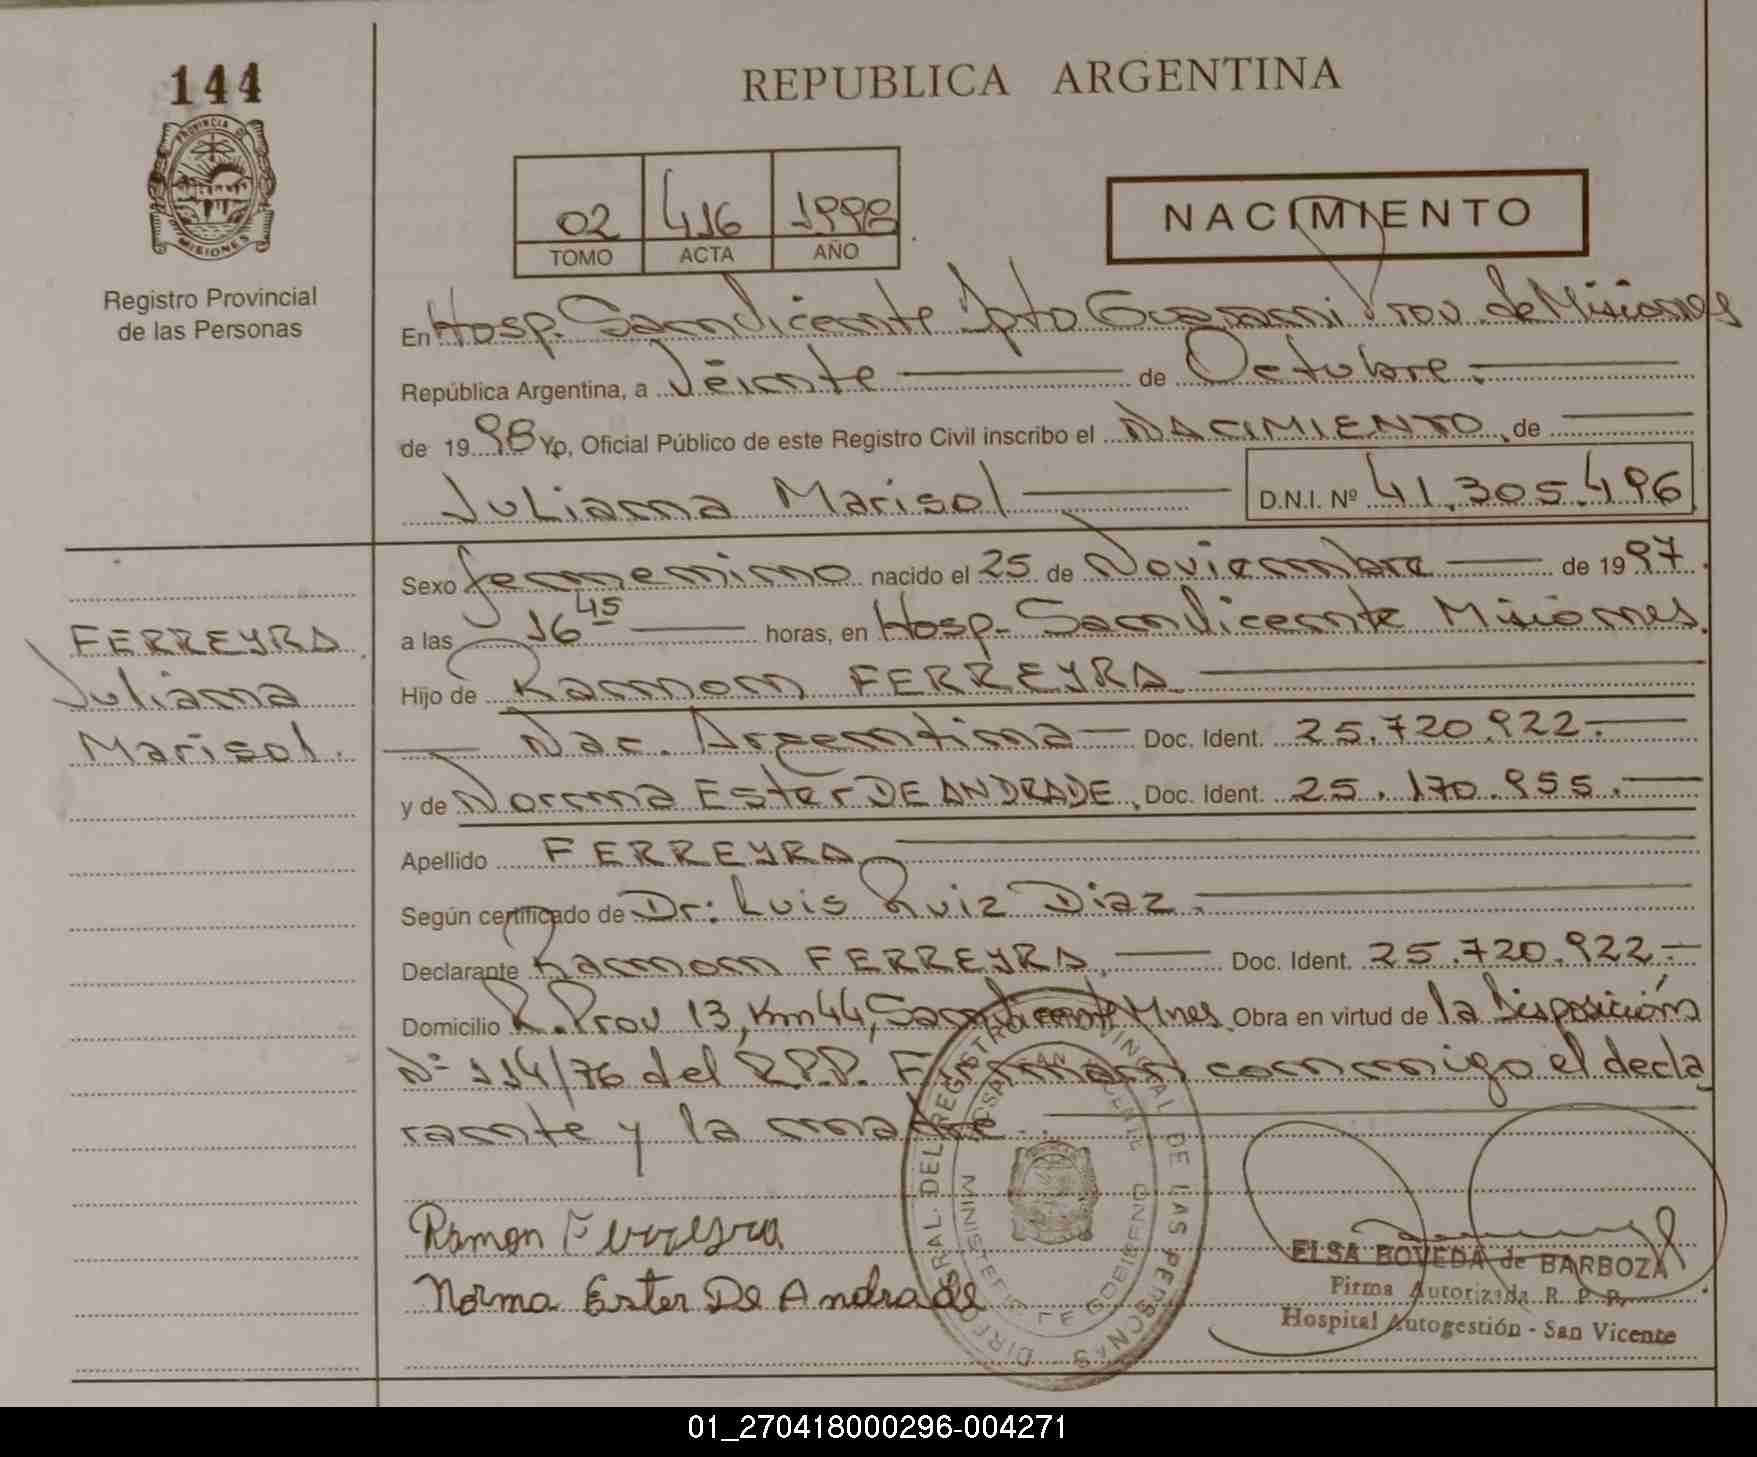 144
REPUBLICA ARGENTINA
PROVINCIA DE
MISIONES
Registro Provincial
de las Personas
02 416 1998
TOMO ACTA AÑO
NACIMIENTO
En Hosp. San Vicente Dpto Guarani Prov. de Misiones
República Argentina, a Veinte de Octubre.
de 1998 Yo, Oficial Público de este Registro Civil inscribo el NACIMIENTO, de
Juliana Marisol D.N.I. Nº 41.305.496
Sexo femenino nacido el 25 de Noviembre de 1997.
a las 16 45 horas, en Hosp. San Vicente Misiones.
FERREYRA
Juliana
Marisol.
Hijo de Ramon FERREYRA
Nac. Argentina Doc. Ident. 25.720.922.
y de Norma Ester DE ANDRADE, Doc. Ident. 25.170.955.
Apellido FERREYRA
Según certificado de Dr: Luis Ruiz Diaz.
Declarante Ramon FERREYRA, Doc. Ident. 25.720.922.
Domicilio R. Prov 13, Km 44, San Vicente Mnes. Obra en virtud de la Disposición
Nº 114/76 del R.P.P. Firman conmigo el decla
rante y la madre.
Ramon Ferreyra
Norma Ester De Andrade
DIRECCION GRAL. DEL REGISTRO PROVINCIAL DE LAS PERSONAS
HOSP. SAN VICENTE
MINISTERIO DE GOBIERNO
ELSA BOVEDA de BARBOZA
Firma Autorizada R. P. P.
Hospital Autogestión - San Vicente
01_270418000296-004271